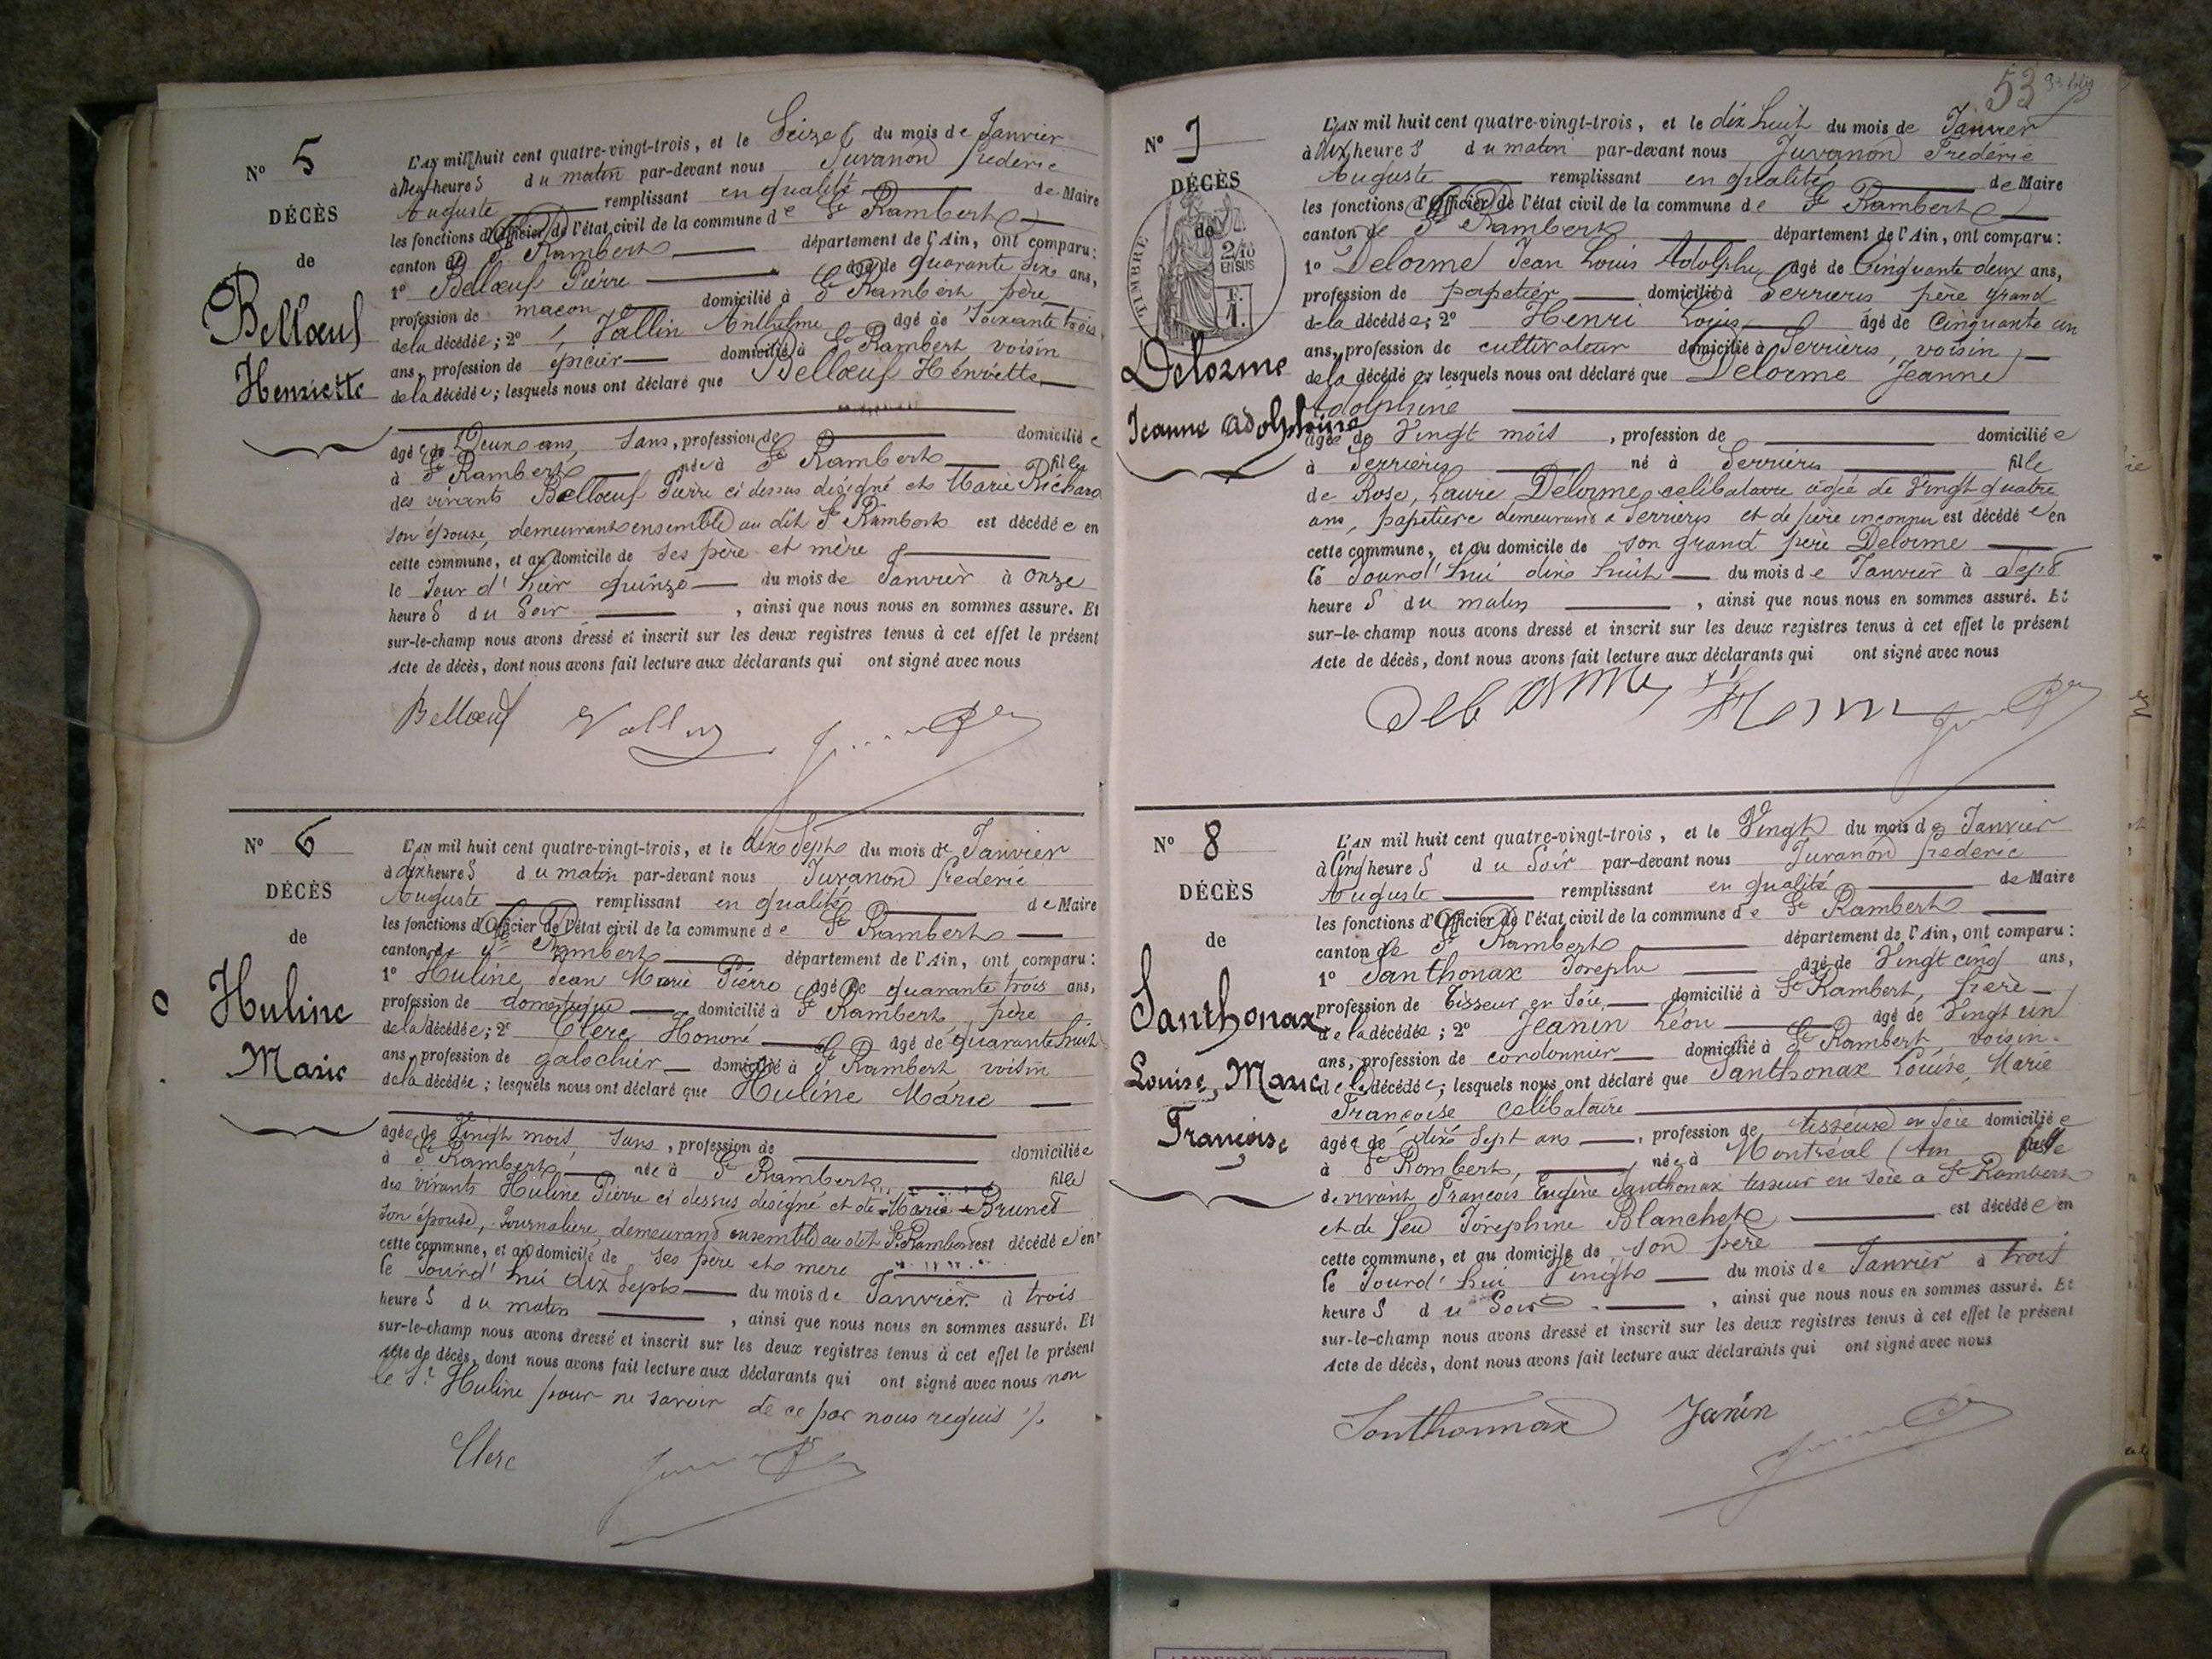 N° 5
DÉCÈS
de
Bellœuf
Henriette
L'AN mil huit cent quatre-vingt-trois, et le Seize du mois de Janvier
à heures du matin par-devant nous Juvanon frederic
Auguste remplissant en qualité de Maire
les fonctions d'Officier de l'état civil de la commune de St Rambert
canton de St Rambert département de l'Ain, ont comparu :
1° Bellœuf Pierre âgé de quarante six ans,
profession de maçon domicilié à St Rambert, père
de la décédée ; 2° Vallin Anthelme âgé de Soixante trois
ans, profession de épicier domicilié à St Rambert voisin
de la décédée ; lesquels nous ont déclaré que Bellœuf Henriette
âgée de Deux ans, sans, profession de domiciliée
à St Rambert née à St Rambert fille
des vivants Bellœuf Pierre ci dessus désigné et Marie Richard
son épouse, demeurant ensemble au dit St Rambert est décédée en
cette commune, et au domicile de ses père et mère
le Jour d'hier quinze du mois de Janvier à onze
heures du Soir, ainsi que nous nous en sommes assuré. Et
sur-le-champ nous avons dressé et inscrit sur les deux registres tenus à cet effet le présent
Acte de décès, dont nous avons fait lecture aux déclarants qui ont signé avec nous
Bellœuf Vallin
N° 6
DÉCÈS
de
Huline
Marie
L'AN mil huit cent quatre-vingt-trois, et le dix Sept du mois de Janvier
à dix heures du matin par-devant nous Juvanon frederic
Auguste remplissant en qualité de Maire
les fonctions d'Officier de l'état civil de la commune de St Rambert
canton de St Rambert département de l'Ain, ont comparu :
1° Huline Jean Marie Pierre âgé de quarante trois ans,
profession de domestique domicilié à St Rambert, père
de la décédée ; 2° Clerc Honoré âgé de quarante huit
ans, profession de galochier domicilié à St Rambert voisin
de la décédée ; lesquels nous ont déclaré que Huline Marie
âgée de Vingt mois, sans, profession de domiciliée
à St Rambert née à St Rambert fille
des vivants Huline Pierre ci dessus désigné et de Marie Brunet
son épouse, Journalière, demeurant ensemble au dit St Rambert est décédée en
cette commune, et au domicile de ses père et mère
le Jourd'hui dix Sept du mois de Janvier à trois
heures du matin, ainsi que nous nous en sommes assuré. Et
sur-le-champ nous avons dressé et inscrit sur les deux registres tenus à cet effet le présent
acte de décès, dont nous avons fait lecture aux déclarants qui ont signé avec nous non
le Sr Huline pour ne savoir de ce par nous requis ./.
Clerc
53
N° 7
DÉCÈS
de
TIMBRE
2/10
EN SUS
Delorme
Jeanne Adolphine
L'AN mil huit cent quatre-vingt-trois, et le dix huit du mois de Janvier
à dix heures du matin par-devant nous Juvanon Frédéric
Auguste remplissant en qualité de Maire
les fonctions d'Officier de l'état civil de la commune de St Rambert
canton de St Rambert département de l'Ain, ont comparu :
1° Delorme Jean Louis Adolphe âgé de Cinquante deux ans,
profession de papetier domicilié à Serrières père grand
de la décédée ; 2° Henri Louis âgé de Cinquante un
ans, profession de cultivateur domicilié à Serrières, voisin
de la décédée lesquels nous ont déclaré que Delorme Jeanne
Adolphine
âgée de Vingt mois, profession de domiciliée
à Serrières né à Serrières fille
de Rose, Laure Delorme, celibataire âgée de Vingt quatre
ans, papetière demeurant à Serrières et de père inconnu est décédée en
cette commune, et au domicile de son grand père Delorme
le Jourd'hui dix huit du mois de Janvier à Sept
heures du matin, ainsi que nous nous en sommes assuré. Et
sur-le-champ nous avons dressé et inscrit sur les deux registres tenus à cet effet le présent
Acte de décès, dont nous avons fait lecture aux déclarants qui ont signé avec nous
Delorme
N° 8
DÉCÈS
de
Santhonax
Louise, Marie
Françoise
L'AN mil huit cent quatre-vingt-trois, et le Vingt du mois de Janvier
à Cinq heures du Soir par-devant nous Juvanon frederic
Auguste remplissant en qualité de Maire
les fonctions d'Officier de l'état civil de la commune de St Rambert
canton de St Rambert département de l'Ain, ont comparu :
1° Santhonax Joseph âgé de Vingt cinq ans,
profession de Tisseur en Soie domicilié à St Rambert, frère
de la décédée ; 2° Jeanin Léon âgé de Vingt un
ans, profession de cordonnier domicilié à St Rambert, voisin
de la décédée ; lesquels nous ont déclaré que Santhonax Louise, Marie
Françoise celibataire
âgée de dix sept ans, profession de tisseuse en Soie domiciliée
à St Rambert, née à Montréal (Ain fille
de vivant François Eugène Santhonax tisseur en soie à St Rambert
et de feu Joséphine Blanchet est décédée en
cette commune, et au domicile de son père
le Jourd'hui Vingt du mois de Janvier à trois
heures du Soir, ainsi que nous nous en sommes assuré. Et
sur-le-champ nous avons dressé et inscrit sur les deux registres tenus à cet effet le présent
Acte de décès, dont nous avons fait lecture aux déclarants qui ont signé avec nous
Santhonnax Janin